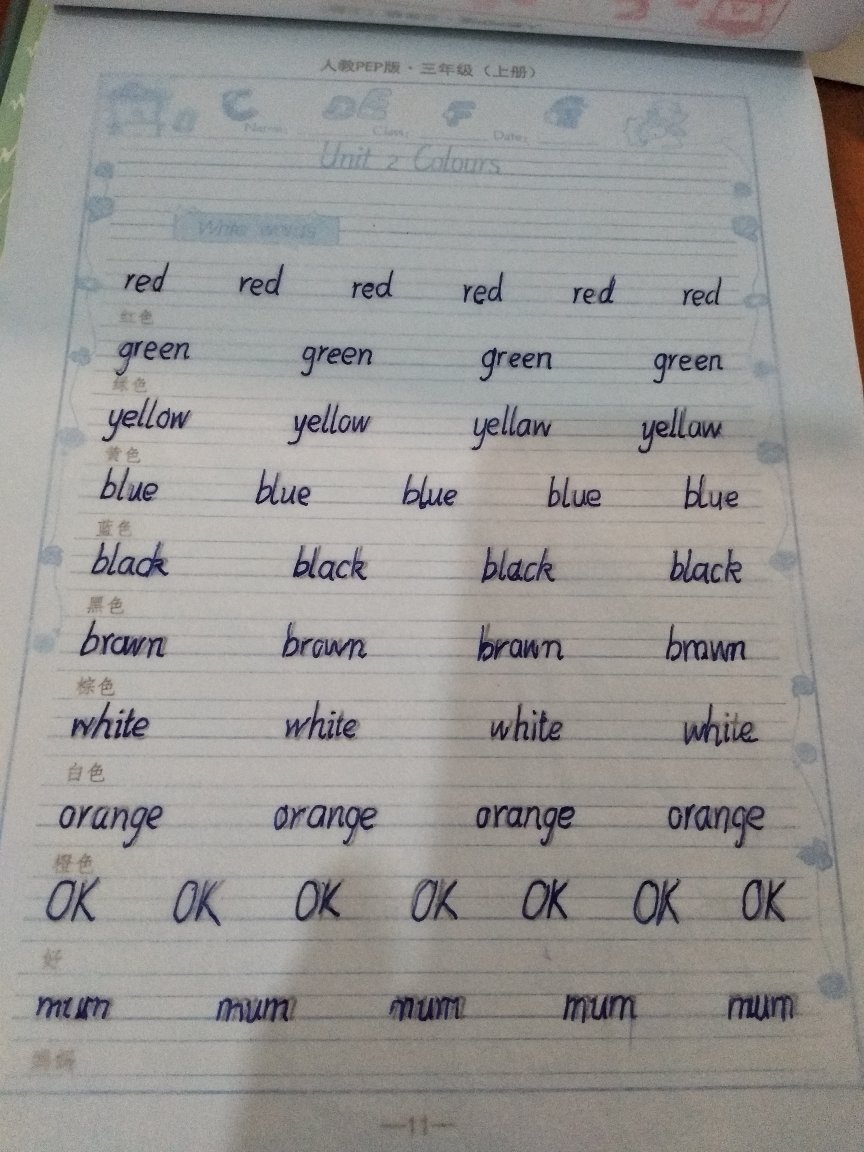 人教PEP版·三年级（上册）
C DE F
Name: Class: Date:
Unit 2 Colours
Write words
red red red red red red
红色
green green green green
绿色
yellow yellow yellaw yellaw
黄色
blue blue blue blue blue
蓝色
black black black black
黑色
brown brown brawn brawn
棕色
white white white white
白色
orange orange orange orange
橙色
OK OK OK OK OK OK OK
好
mum mum mum mum mum
妈妈
—11—